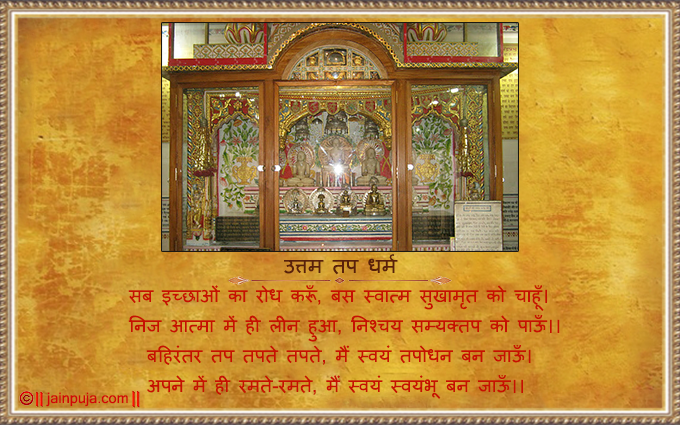 उत्तम तप धर्म
सब इच्छाओं का रोध करूँ, बस स्वात्म सुखामृत को चाहूँ।
निज आत्मा में ही लीन हुआ, निश्चय सम्यक्तप को पाऊँ।।
बहिरंतर तप तपते तपते, मैं स्वयं तपोधन बन जाऊँ।
अपने में ही रमते-रमते, मैं स्वयं स्वयंभू बन जाऊँ।।
©|| jainpuja.com ||